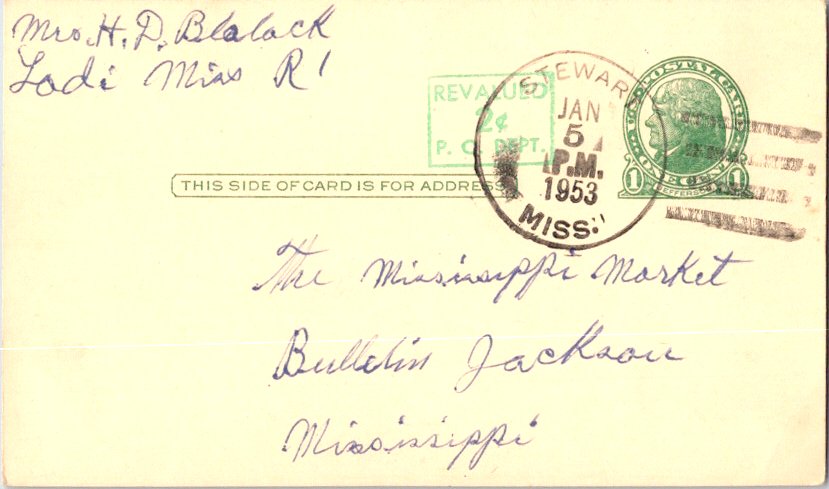 Mrs. H. D. Blalack
Lodi Miss R 1
REVALUED
2¢
P. O. DEPT.
STEWART
JAN
5
P.M.
1953
MISS.
U.S. POSTAL CARD
ONE CENT
1 JEFFERSON 1
THIS SIDE OF CARD IS FOR ADDRESS
The Mississippi Market
Bulletin Jackson
Mississippi